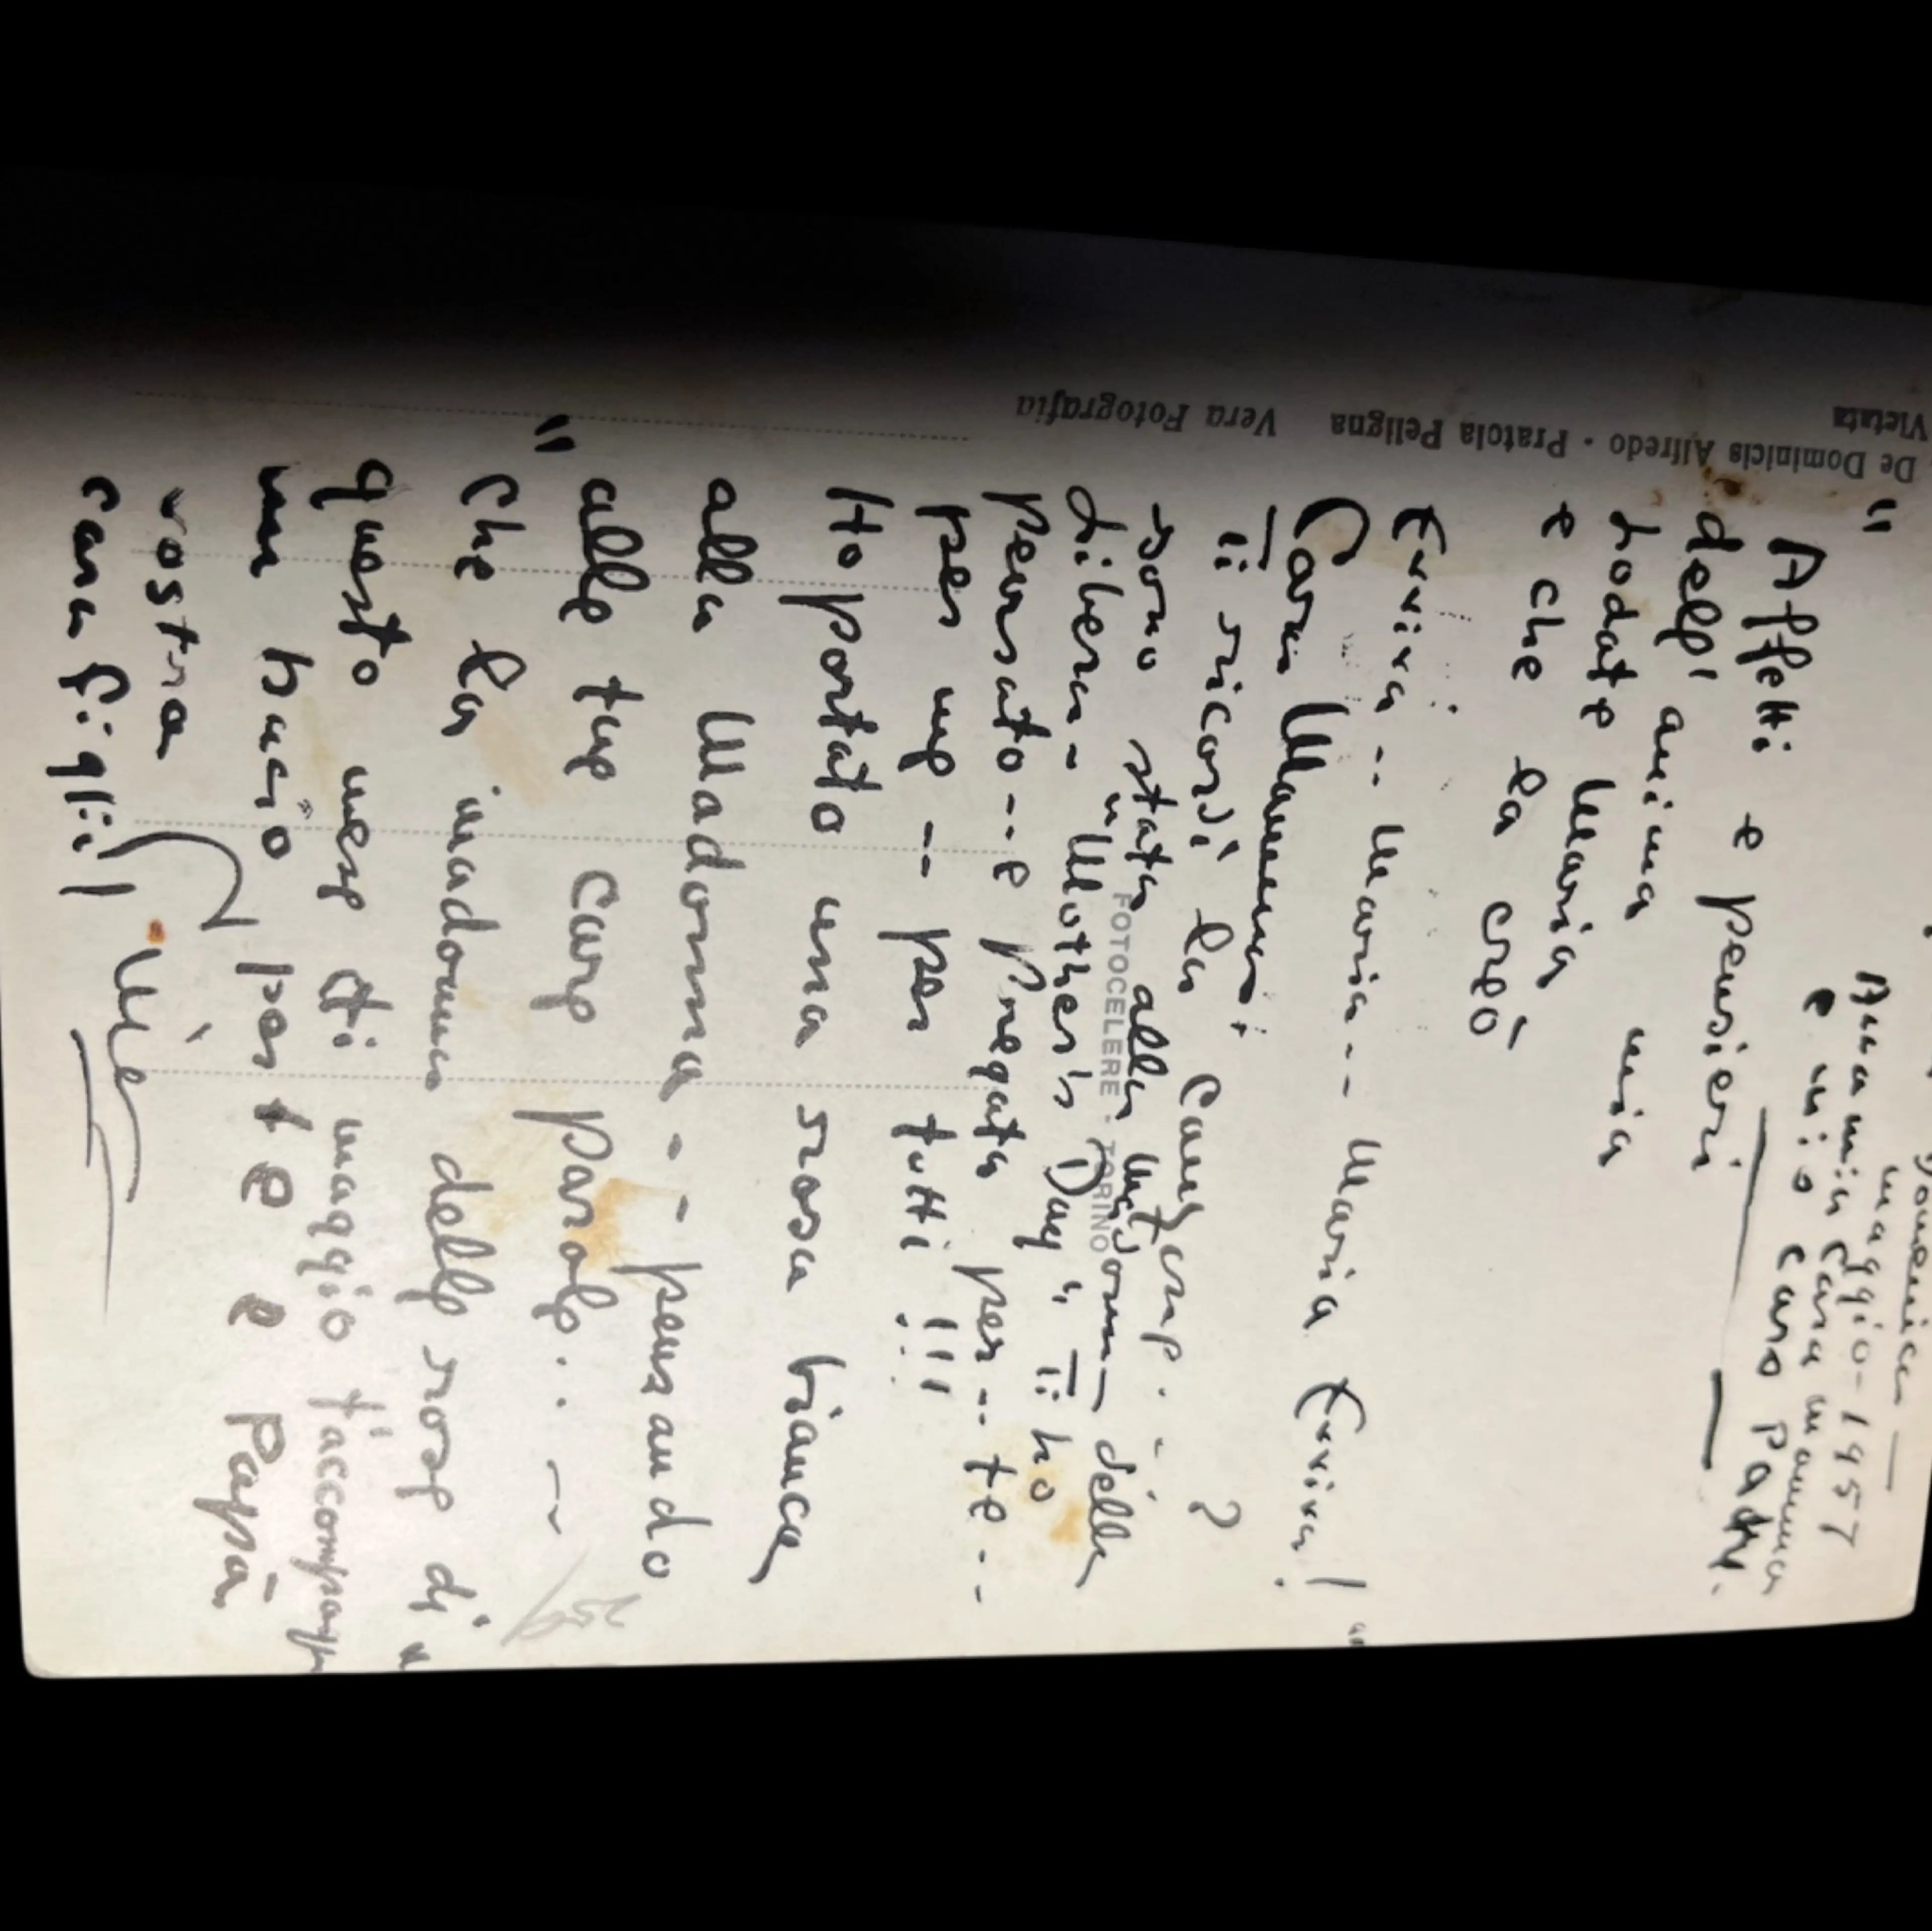 Domenica
maggio - 1957
A una mia cara mamma
e mio caro Padre.
"Affetti e pensieri
dell'anima mia
Lodate Maria
e che la creò
Evviva -- Maria -- Maria -- Maria Evviva!"
Cara Mamma:
Ti ricordi la canzone.. ?
sono stata alla Madonna della
Libera - "Mother's Day". Ti ho
pensato -- e pregata per -- te --
per me -- per tutti!!!
Ho portato una rosa bianca
alla Madonna -- pensando
alle tue care parole.. ~
"Che la madonna delle rose di"
questo mese di maggio t'accompagni
un bacio per te e Papà
vostra
cara figlia
259
De Dominicis Alfredo · Pratola Peligna Vera Fotografia
Vietata
FOTOCELERE · TORINO